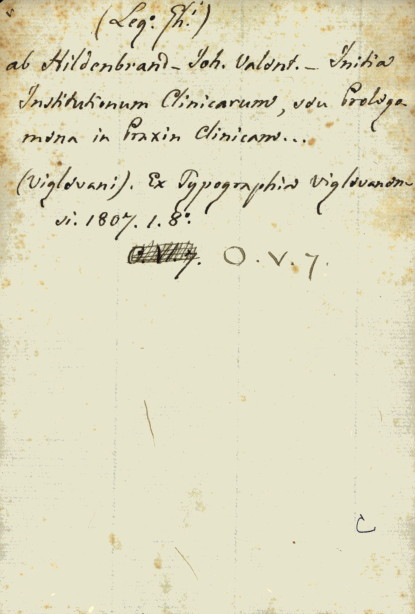 (Leg: Th:)
ab Hildenbrand - Joh. Valent. - Initia
Institutionum Clinicarum, seu Prolego
mena in Praxin Clinicam...
(Viglevani). Ex Typographia Viglevanen
si. 1807. 1. 8º.
O. V. 7.
C